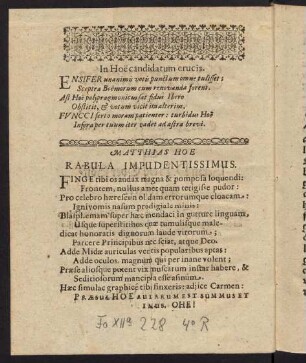 In Hoë candidatum crucis.
ENSIFER unanimi voto punctum omne tulisset:
Sceptra Boëmorum cum renovanda forent.
Ast Hoë polypragmonicus sed fidus Ibero
Obstitit, & votum vicit in alterius.
FUNCCI sero moram patienter: turbidus Hoë
Infera per tuum iter vadet ad astra brevi.
MATTHIAS HOE
RABULA IMPUDENTISSIMUS.
FINGE tibi os audax magna & pomposa loquendi:
Frontem, nullus quam tetigisse pudor:
Pro celebro hæresein ol dam errorumque cloacam:
Ignivomis nasum prodigiale minis:
Blasphemam super hæc mendaci in gutture linguam,
Usque superstitibus quæ tumulisque maledicat
honoratis dignorum laude virorum;
Parcere Principibus nec sciat, atque Deo.
Adde Midæ auriculas ventis popularibus aptas:
Adde oculos magnum qui per inane volent;
Præse aliosque putent vix muscarum instar habere, &
Seditiosorum mancipia esse asinum.
Hæc simulac graphicè tibi finxeris; adjice Carmen:
PRÆSUL HOE
IMUS. OHE!
228 4° R